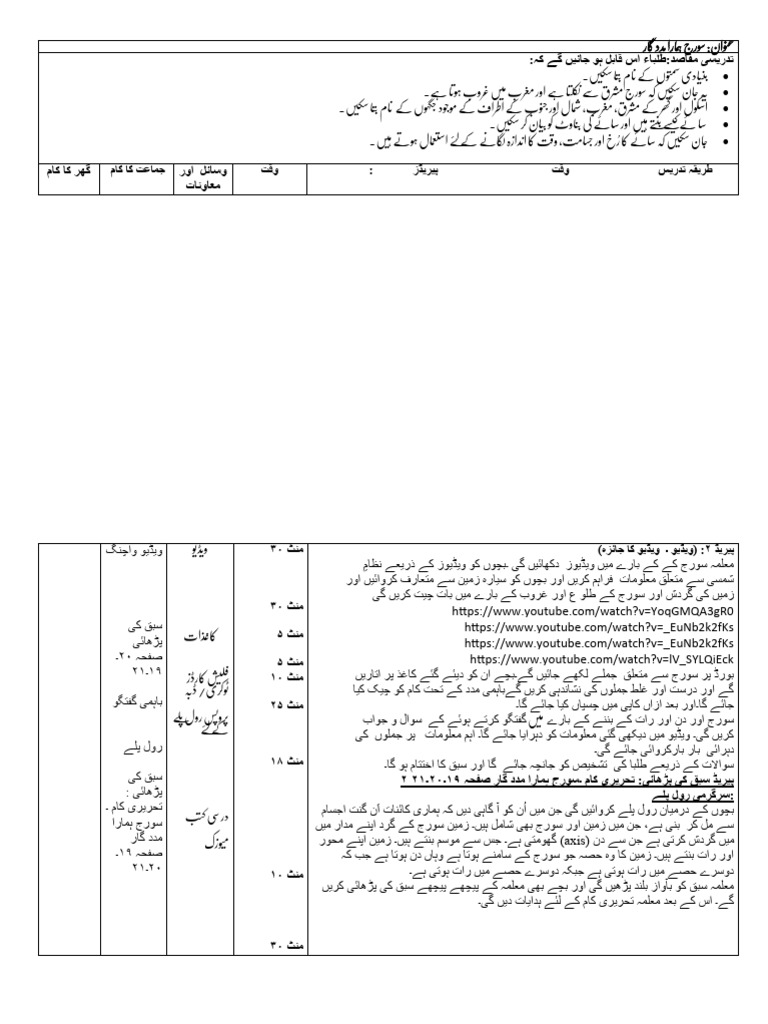 عنوان: سورج ہمارا مددگار
تدریسی مقاصد:طلباء اس قابل ہو جائیں گے کہ:
• بنیادی سمتوں کے نام بتا سکیں۔
• یہ جان سکیں کہ سورج مشرق سے نکلتا ہے اور مغرب میں غروب ہوتا ہے۔
• اسکول اور گھر کے مشرق، مغرب، شمال اور جنوب کے اطراف کے موجود جگہوں کے نام بتا سکیں۔
• سائے کیسے بنتے ہیں اور سائے کی بناوٹ کو بیان کر سکیں۔
• جان سکیں کہ سائے کا رُخ اور جسامت، وقت کا اندازہ لگانے کے لئے استعمال ہوتے ہیں۔
طریقہ تدریس وقت پیریڈز :
وقت
وسائل اور
معاونات
جماعت کا کام
گھر کا کام
پیریڈ ۲: (ویڈیو ۔ ویڈیو کا جائزہ)
معلمہ سورج کے کے بارے میں ویڈیوز دکھائیں گی ۔بچوں کو ویڈیوز کے ذریعے نظامِ
شمسی سے متعلق معلومات فراہم کریں اور بچوں کو سیارہ زمین سے متعارف کروائیں اور
زمیں کی گردش اور سورج کے طلو ع اور غروب کے بارے میں بات چیت کریں گی
https://www.youtube.com/watch?v=YoqGMQA3gR0
https://www.youtube.com/watch?v=_EuNb2k2fKs
https://www.youtube.com/watch?v=_EuNb2k2fKs
https://www.youtube.com/watch?v=lV_SYLQiEck
بورڈ پر سورج سے متعلق جملے لکھے جائیں گے۔بچے ان کو دیئے گئے کاغذ پر اتاریں
گے اور درست اور غلط جملوں کی نشاندہی کریں گے۔باہمی مدد کے تحت کام کو چیک کیا
جائے گا۔اور بعد ازاں کاپی میں چسپاں کیا جائے گا۔
سورج اور دن اور رات کے بننے کے بارے میں گفتگو کرتے ہوئے کے سوال و جواب
کریں گی۔ ویڈیو میں دیکھی گئی معلومات کو دہرایا جائے گا۔ اہم معلومات پر جملوں کی
دہرائی بار بارکروائی جائے گی۔
سوالات کے ذریعے طلبا کی تشخیص کو جانچہ جائے گا اور سبق کا اختتام ہو گا۔
پیریڈ سبق کی پڑھائی: تحریری کام ۔سورج ہمارا مدد گار صفحہ ۱۹۔۲۰۔۲۱ ۲
:سرگرمی رول پلے
بچوں کے درمیان رول پلے کروائیں گی جن میں اُن کو آ گاہی دیں کہ ہماری کائنات اَن گنت اجسام
سے مل کر بنی ہے، جن میں زمین اور سورج بھی شامل ہیں۔ زمین سورج کے گرد اپنے مدار میں
گھومتی ہے۔ جس سے موسم بنتے ہیں۔ زمین اپنے محور (axis) میں گردش کرتی ہے جن سے دن
اور رات بنتے ہیں۔ زمین کا وہ حصہ جو سورج کے سامنے ہوتا ہے وہاں دن ہوتا ہے جب کہ
دوسرے حصے میں رات ہوتی ہے جبکہ دوسرے حصے میں رات ہوتی ہے۔
معلمہ سبق کو بآواز بلند پڑھیں گی اور بچے بھی معلمہ کے پیچھے پیچھے سبق کی پڑھائی کریں
گے۔ اس کے بعد معلمہ تحریری کام کے لئے ہدایات دیں گی۔
۳۰ منٹ
۳۰ منٹ
۵ منٹ
۵ منٹ
۱۰ منٹ
۲۵ منٹ
۱۸ منٹ
۱۰ منٹ
۳۰ منٹ
ویڈیو
کاغذات
فلیش کارڈز
ٹوکری / ڈبہ
پروپس رول پلے
کے لئے
درسی کتب
میوزک
ویڈیو واچنگ
سبق کی
پڑھائی
صفحہ ۲۰۔
۲۱.۱۹
باہمی گفتگو
رول پلے
سبق کی
پڑھائی :
تحریری کام ۔
سورج ہمارا
مدد گار
صفحہ ۱۹۔
۲۱.۲۰